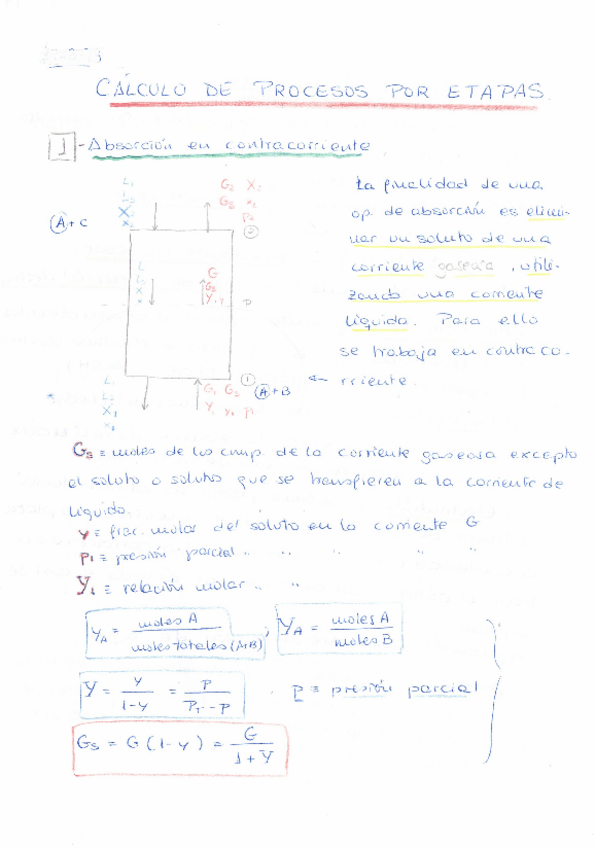 CÁLCULO DE PROCESOS POR ETAPAS
1 - Absorción en contracorriente
La finalidad de una
op. de absorción es elimi-
nar un soluto de una
corriente gaseosa, utili-
zando una corriente
líquida. Para ello
se trabaja en contraco-
rriente.
A + C
G2
2
G
Gs
1
G1 Gs
A + B
Gs ≡ moles de los comp. de la corriente gaseosa excepto
el soluto o solutos que se transfieren a la corriente de
líquido.
y ≡ frac. molar del soluto en la corriente G
P1 ≡ presión parcial " " " " "
Y1 ≡ relación molar " "
yA = moles A / moles totales (A+B) ; YA = moles A / moles B
Y = y / 1-y = P / PT - P P ≡ presión parcial
Gs = G (1-y) = G / 1+Y